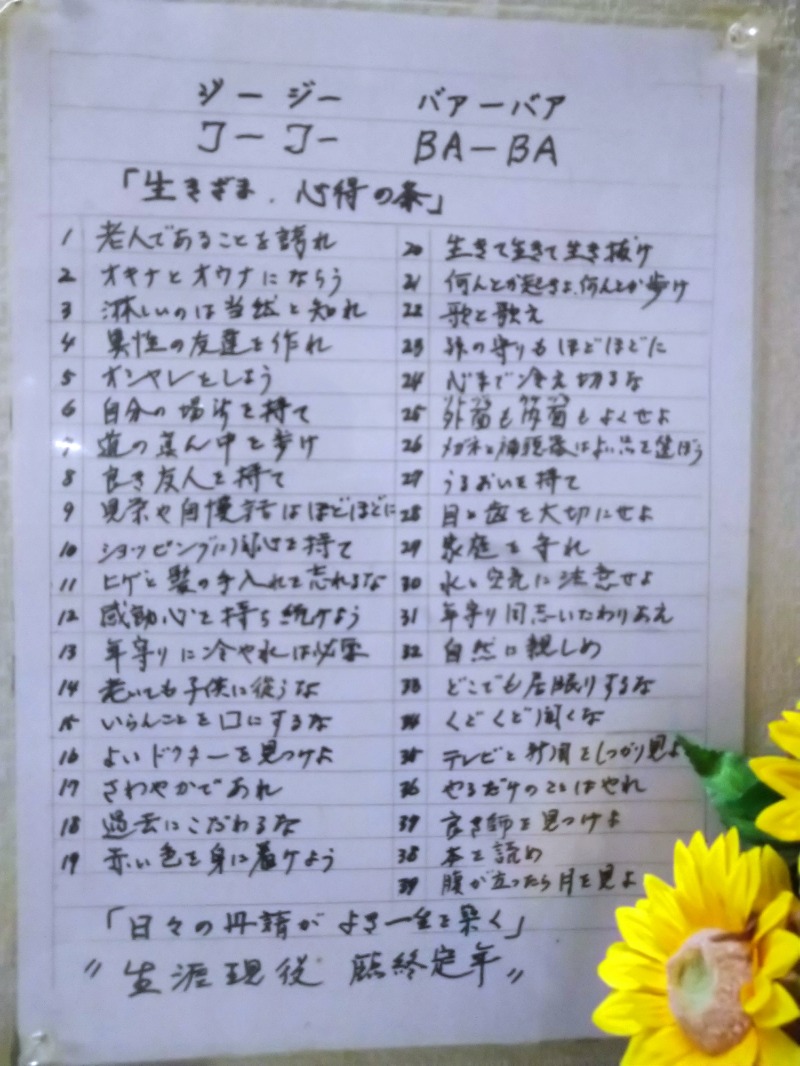 ジージー バアーバア
コーコー BA-BA
「生きざま、心得の条」
1 老人であることを誇れ
2 オキナとオウナにならう
3 淋しいのは当然と知れ
4 異性の友達を作れ
5 オシャレをしよう
6 自分の場所を持て
7 道の真ん中を歩け
8 良き友人を持て
9 見栄や自慢話はほどほどに
10 ショッピングに関心を持て
11 ヒゲと髪の手入れを忘れるな
12 感動心を持ち続けよう
13 年寄りに冷や水は必要
14 老いても子供に従うな
15 いらんことを口にするな
16 よいドクターを見つけよ
17 さわやかであれ
18 過去にこだわるな
19 赤い色を身に着けよう
20 生きて生きて生き抜け
21 何んとか起きよ、何んとか歩け
22 歌を歌え
23 孫の守りもほどほどに
24 心まで冷え切るな
25 外面も内面もよくせよ
26 メガネと補聴器はよい品を選ぼう
27 うるおいを持て
28 目と歯を大切にせよ
29 家庭を守れ
30 水と空気に注意せよ
31 年寄り同志いたわりあえ
32 自然に親しめ
33 どこでも居眠りするな
34 くどくど聞くな
35 テレビと新聞をしっかり見よ
36 やるだけのことはやれ
37 良き師を見つけよ
38 本を読め
39 腹が立ったら月を見よ
「日々の丹精がよき一生を築く」
〃生涯現役 臨終定年〃